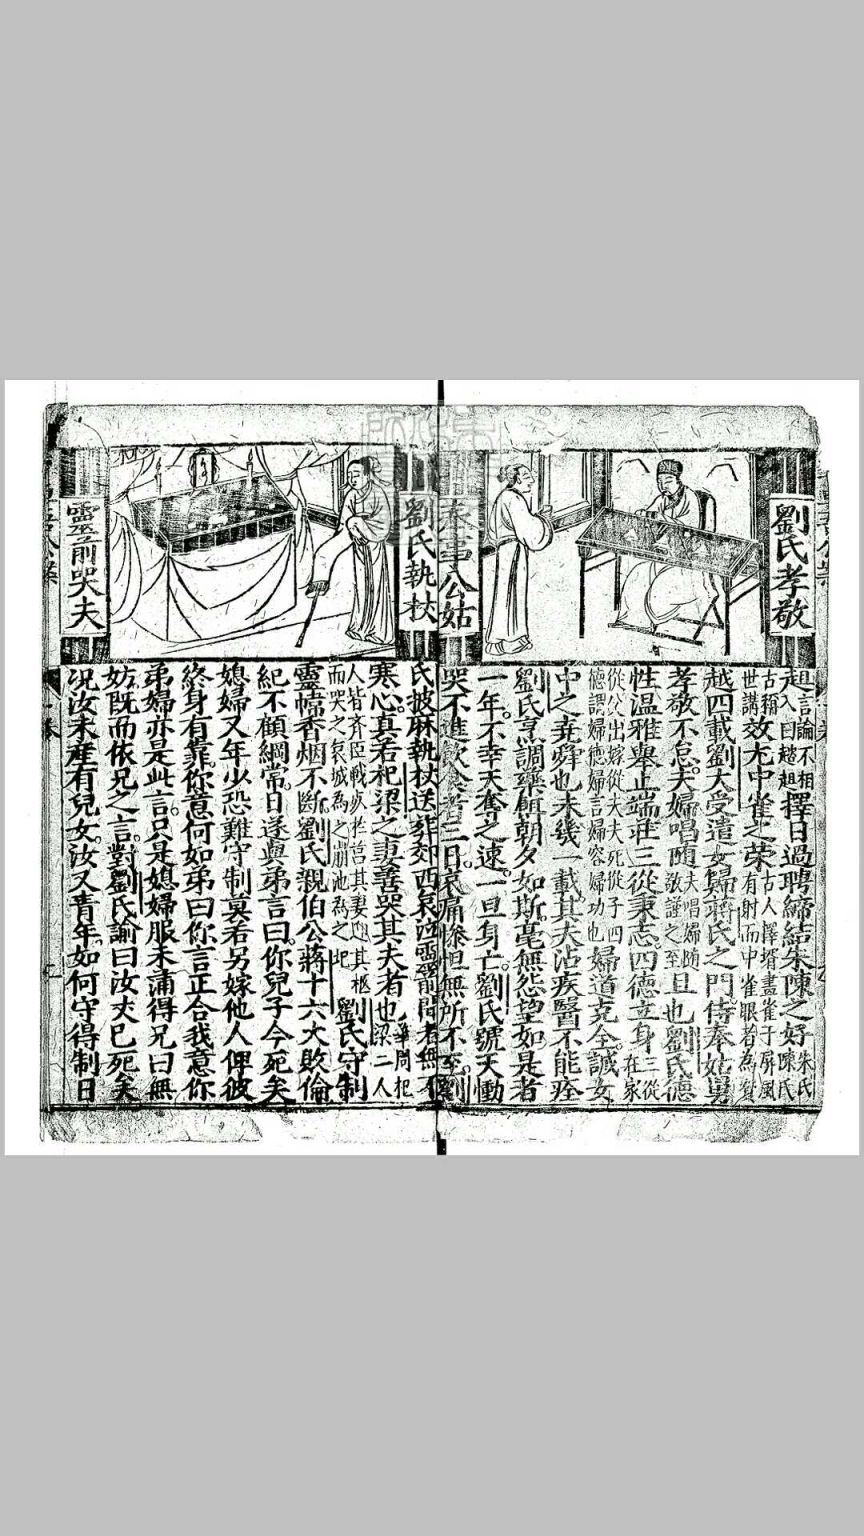 劉氏孝敬
奉事公姑
趄言論不相入曰趑趄擇日過聘締結朱陳之好朱氏陳氏
古稱世講效尤中雀之榮古人擇壻畫雀于屏風有射而中雀眼者為贅
越四載劉大受遣女歸蔣氏之門侍奉姑舅
孝敬不怠夫婦唱随夫唱婦随敬謹之至且也劉氏德
性溫雅舉止端莊三從秉志四德立身三從在家
從父出嫁從夫夫死從子四德謂婦德婦言婦容婦功也婦道克全誠女
中之堯舜也未幾一載其夫沾疾醫不能痊
劉氏烹調藥餌朝夕如斯毫無怨望如是者
一年不幸天奪之速一旦身亡劉氏號天慟
哭不進飲食者三日哀痛慘怛無所不至劉
劉氏執杖
靈前哭夫
氏披麻執杖送葬郊西哀泣靈前聞者無不
寒心真若杞梁之妻善哭其夫者也華周杞梁二人
人皆齊臣戰疚於莒其妻迎其柩而哭之哀城為之崩池為之圯劉氏守制
靈幃香烟不斷劉氏親伯公蔣十六大敗倫
紀不顧綱常日遂與弟言曰你兒子今死矣
媳婦又年少恐難守制莫若另嫁他人俾彼
終身有靠你意何如弟曰你言正合我意你
弟婦亦是此言只是媳婦服未滿得兄曰無
妨既而依兄之言對劉氏諭曰汝夫已死矣
况汝未產有兒女汝又青年如何守得制曰